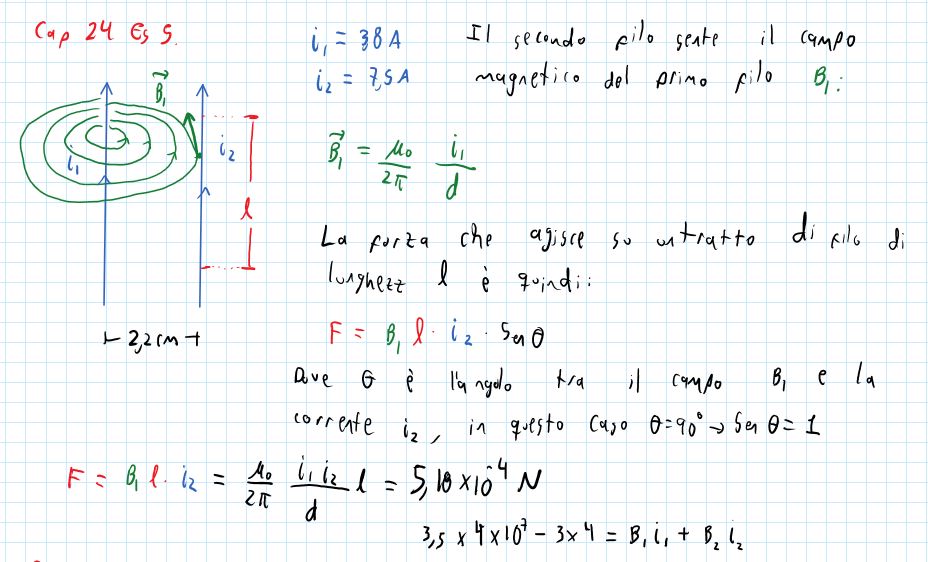 Cap 24 Es 5.
i₁ = 38 A
i₂ = 7,5 A
Il secondo filo sente il campo
magnetico del primo filo B₁:
B⃗₁
i₁
i₂
l
⊢ 2,2 cm ⊣
B⃗₁ = μ₀/2π i₁/d
La forza che agisce su un tratto di filo di
lunghezz l è quindi:
F = B₁ l · i₂ · Sen θ
Dove θ è l'angolo tra il campo B₁ e la
corrente i₂, in questo caso θ=90° → Sen θ = 1
F = B₁ l · i₂ = μ₀/2π i₁ i₂/d l = 5,18 × 10⁻⁴ N
3,5 × 4 × 10⁷ − 3 × 4 = B₁ i₁ + B₂ i₂